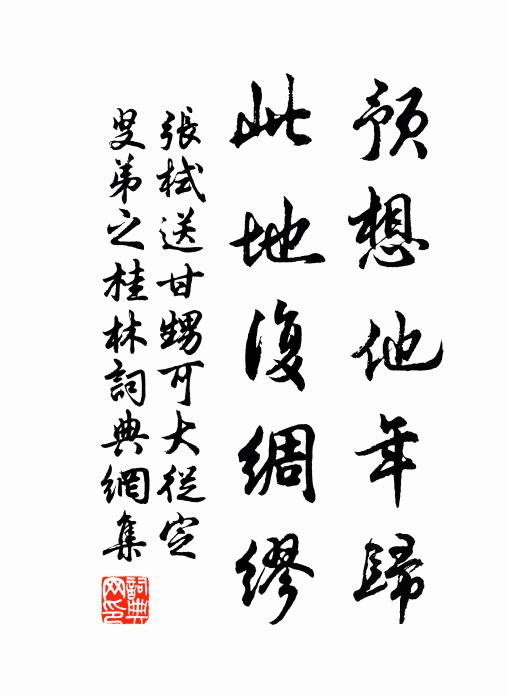 預想他年歸
此地復綢繆
張栻送甘甥可大從定
叟弟之桂林詞典網集
詞典網印